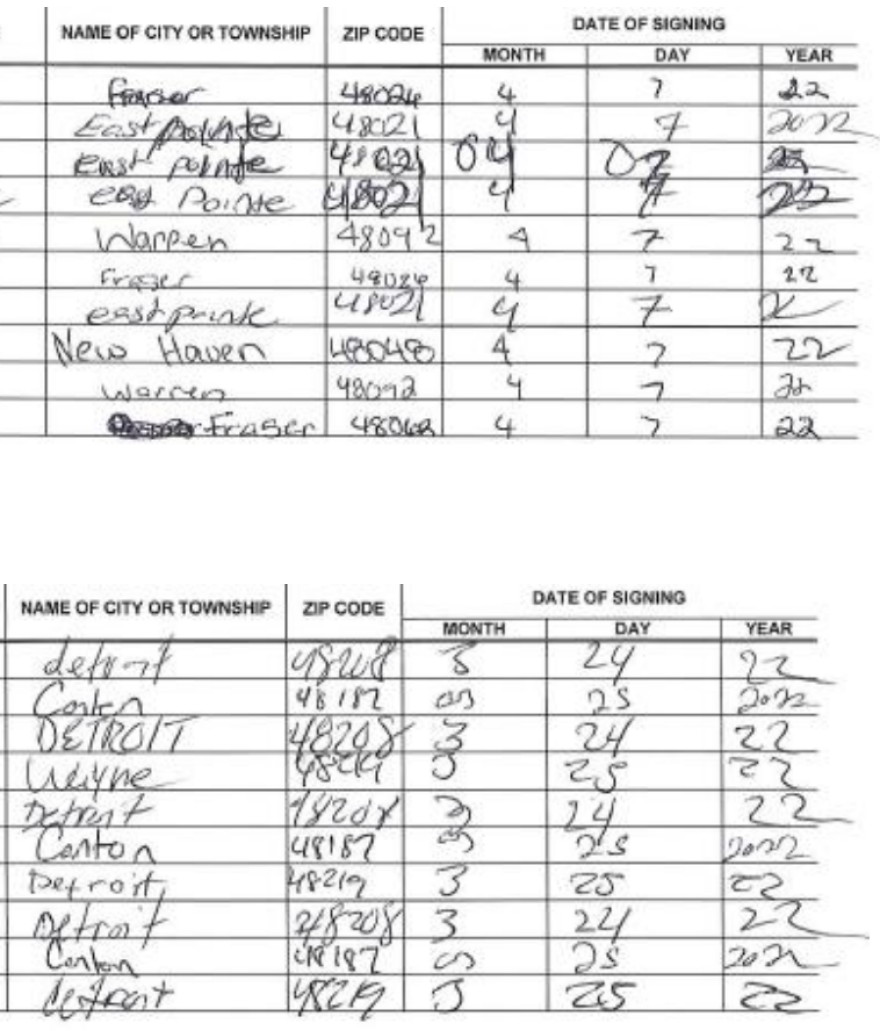 NAME OF CITY OR TOWNSHIP ZIP CODE DATE OF SIGNING
MONTH DAY YEAR
Fraser 48026 4 7 22
East pointe 48021 4 7 2022
East pointe 48021 04 07
east Pointe 48021 4 7 22
Warren 48092 4 7 22
Fraser 48026 4 7 22
east pointe 48021 4 7
New Haven 48048 4 7 22
Warren 48092 4 7 22
Fraser 4 7 22
NAME OF CITY OR TOWNSHIP ZIP CODE DATE OF SIGNING
MONTH DAY YEAR
detroit 48208 3 24 22
Canton 48187 03 25 2022
DETROIT 48208 3 24 22
Wayne 3 25 22
Detroit 48208 3 24 22
Canton 48187 03 25 2022
Detroit 48219 3 25 22
Detroit 48208 3 24 22
Canton 48187 03 25 2022
detroit 48219 3 25 22